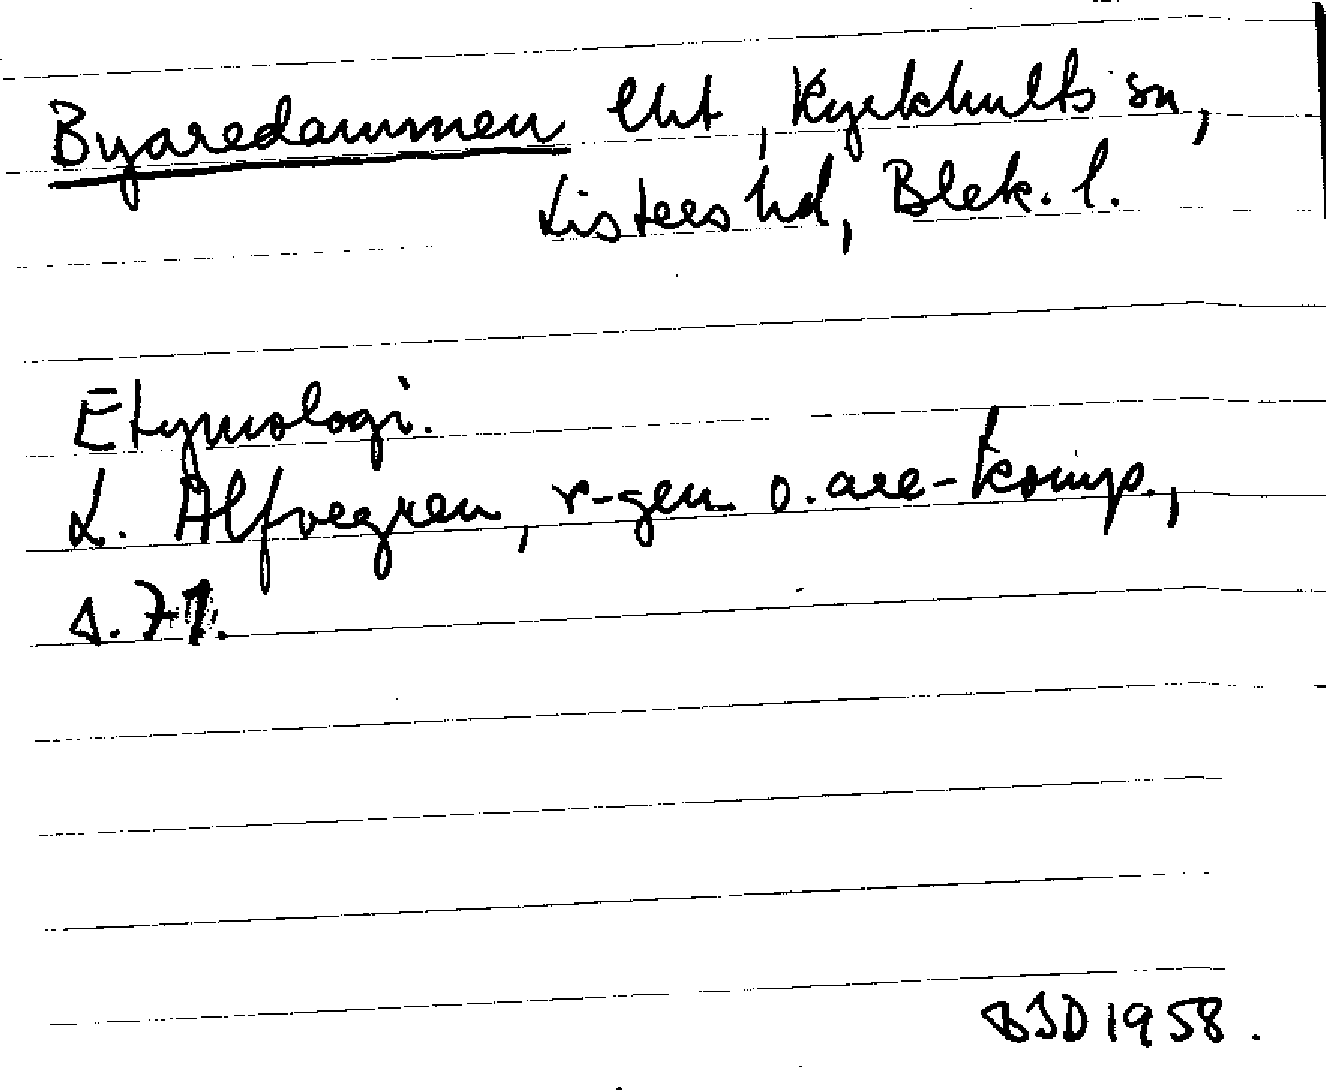 Byaredammen lht, Kyrkhults sn,
Listers hd, Blek. l.
Etymologi.
L. Alfvegren, r-gen o. are-komp.,
s. 71.
BJD 1958.